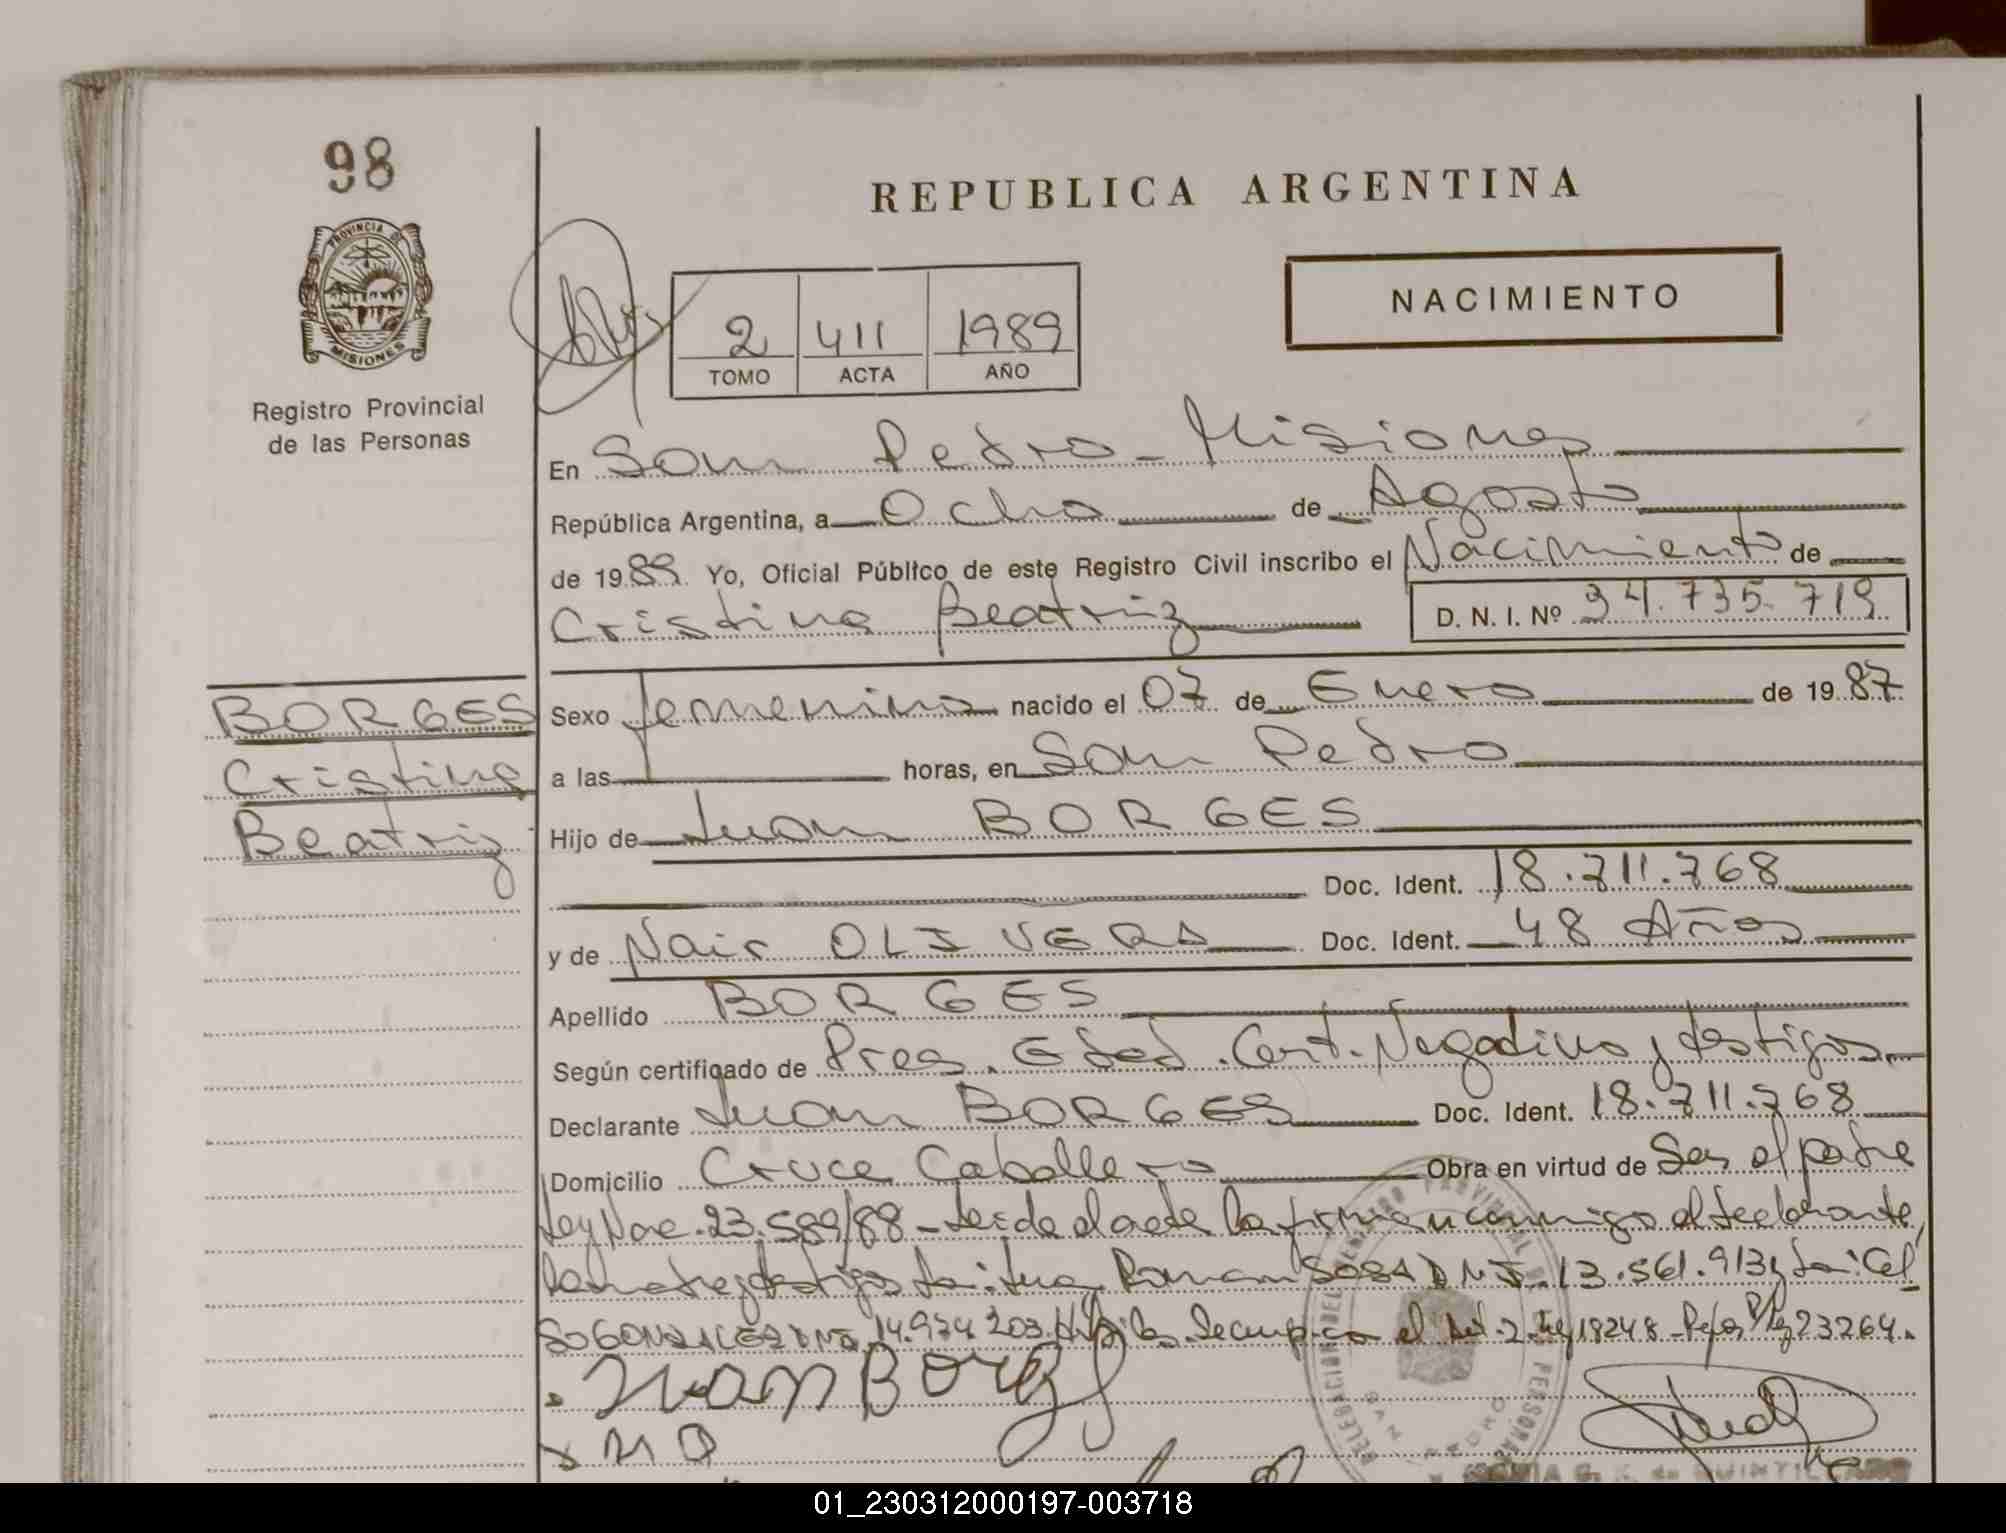 98
REPUBLICA ARGENTINA
PROVINCIA DE
MISIONES
NACIMIENTO
2 411 1989
TOMO ACTA AÑO
Registro Provincial
de las Personas
En San Pedro - Misiones
República Argentina, a Ocho de Agosto
de 1989. Yo, Oficial Público de este Registro Civil inscribo el Nacimiento de
Cristina Beatriz D. N. I. Nº 34.735.719
BORGES
Cristina
Beatriz
Sexo femenino nacido el 07 de Enero de 1987
a las horas, en San Pedro
Hijo de Juan BORGES
Doc. Ident. 18.711.768
y de Nair OLIVERA Doc. Ident. 48 Años
Apellido BORGES
Según certificado de Pres. Edad. Cert. Negativo y testigos
Declarante Juan BORGES Doc. Ident. 18.711.768
Domicilio Cruce Caballero Obra en virtud de Ser el padre
Ley Nac. 23.589/88 - Leida el acta la firman conmigo el declarante,
la madre y testigos Roman SOSA DNI. 13.561.913 y Cel
SO GONZALEZ DNI. 14.974.203. el Art. 2. Ley 18248 - Ley 23264.
Juan Borges
DELEGACION DEL REGISTRO PROVINCIAL DE PERSONAS
SAN PEDRO
DE QUINTILLAN
01_230312000197-003718